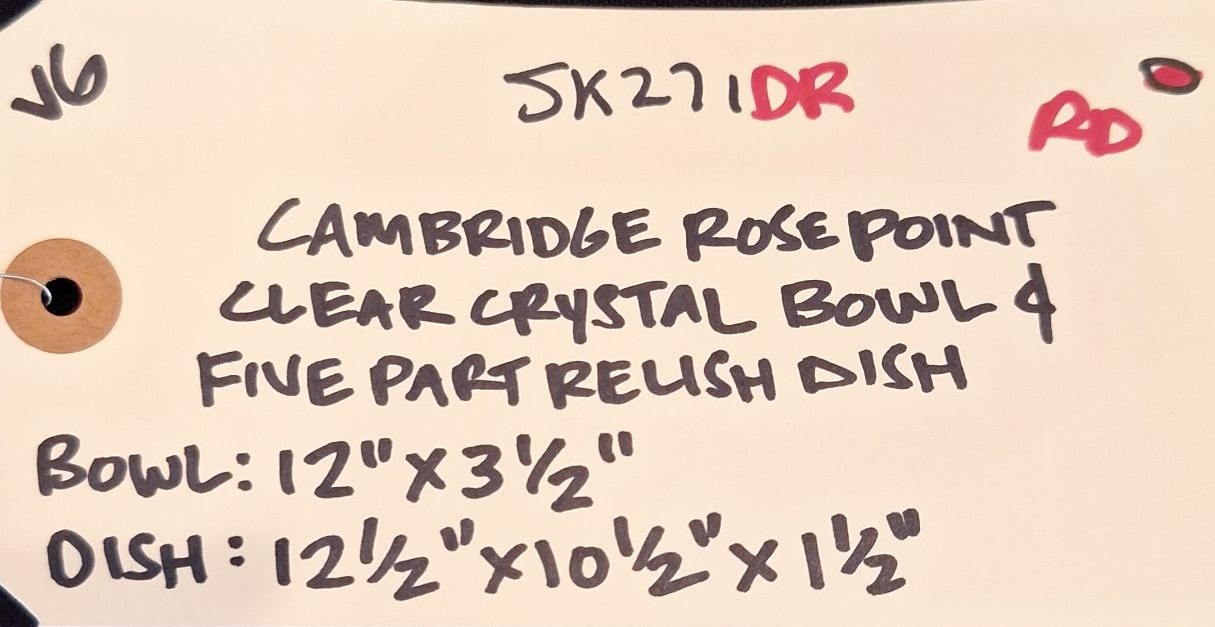 V6 JK271DR RD
CAMBRIDGE ROSE POINT
CLEAR CRYSTAL BOWL &
FIVE PART RELISH DISH
BOWL: 12" X 3 1/2"
DISH: 12 1/2" X 10 1/2" X 1 1/2"